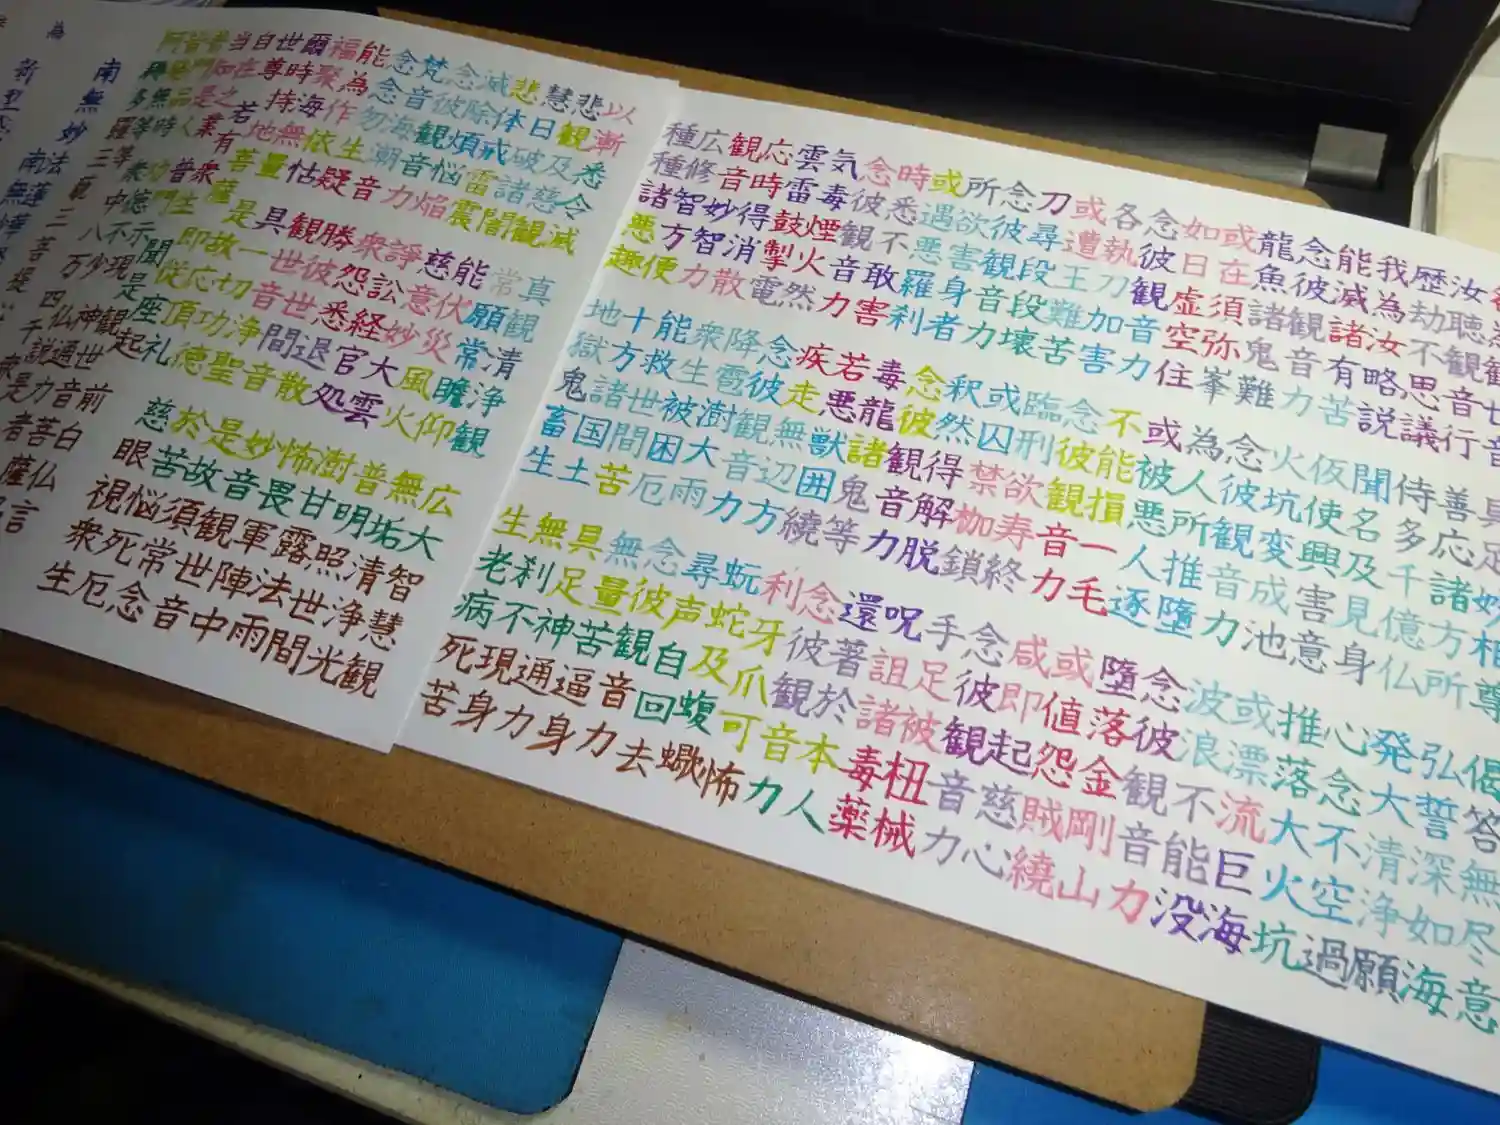 名為観世音 具足妙相尊 偈答無尽意
汝聴観音行 善応諸方所 弘誓深如海
歴劫不思議 侍多千億仏 発大清浄願
我為汝略説 聞名及見身 心念不空過
能滅諸有苦 仮使興害意 推落大火坑
念彼観音力 火坑変成池 或漂流巨海
龍魚諸鬼難 念彼観音力 波浪不能没
或在須弥峯 為人所推墮 念彼観音力
如日虚空住 或被悪人逐 墮落金剛山
念彼観音力 不能損一毛 或値怨賊繞
各執刀加害 念彼観音力 咸即起慈心
或遭王難苦 臨刑欲寿終 念彼観音力
刀尋段段壊 或囚禁枷鎖 手足被杻械
念彼観音力 釈然得解脱 呪詛諸毒薬
所欲害身者 念彼観音力 還著於本人
或遇悪羅刹 毒龍諸鬼等 念彼観音力
時悉不敢害 若悪獣囲繞 利牙爪可怖
念彼観音力 疾走無辺方 蚖蛇及蝮蠍
気毒煙火然 念彼観音力 尋声自回去
雲雷鼓掣電 降雹澍大雨 念彼観音力
応時得消散 衆生被困厄 無量苦逼身
観音妙智力 能救世間苦 具足神通力
広修智方便 十方諸国土 無刹不現身
種種諸悪趣 地獄鬼畜生 生老病死苦
以漸悉令滅 真観清浄観 広大智慧観
悲観及慈観 常願常瞻仰 無垢清浄光
慧日破諸闇 能伏災風火 普明照世間
悲体戒雷震 慈意妙大雲 澍甘露法雨
滅除煩悩焔 諍訟経官処 怖畏軍陣中
念彼観音力 衆怨悉退散 妙音観世音
梵音海潮音 勝彼世間音 是故須常念
念念勿生疑 観世音浄聖 於苦悩死厄
能為作依怙 具一切功徳 慈眼視衆生
福聚海無量 是故応頂礼
爾時持地菩薩 即従座起 前白仏言
世尊 若有衆生 聞是観世音菩薩
自在之業 普門示現 神通力者
当知是人 功徳不少 仏説是
普門品時 衆中八万四千衆
皆発無等等
阿耨多羅三藐三菩提心
南無妙法蓮華
為 新型